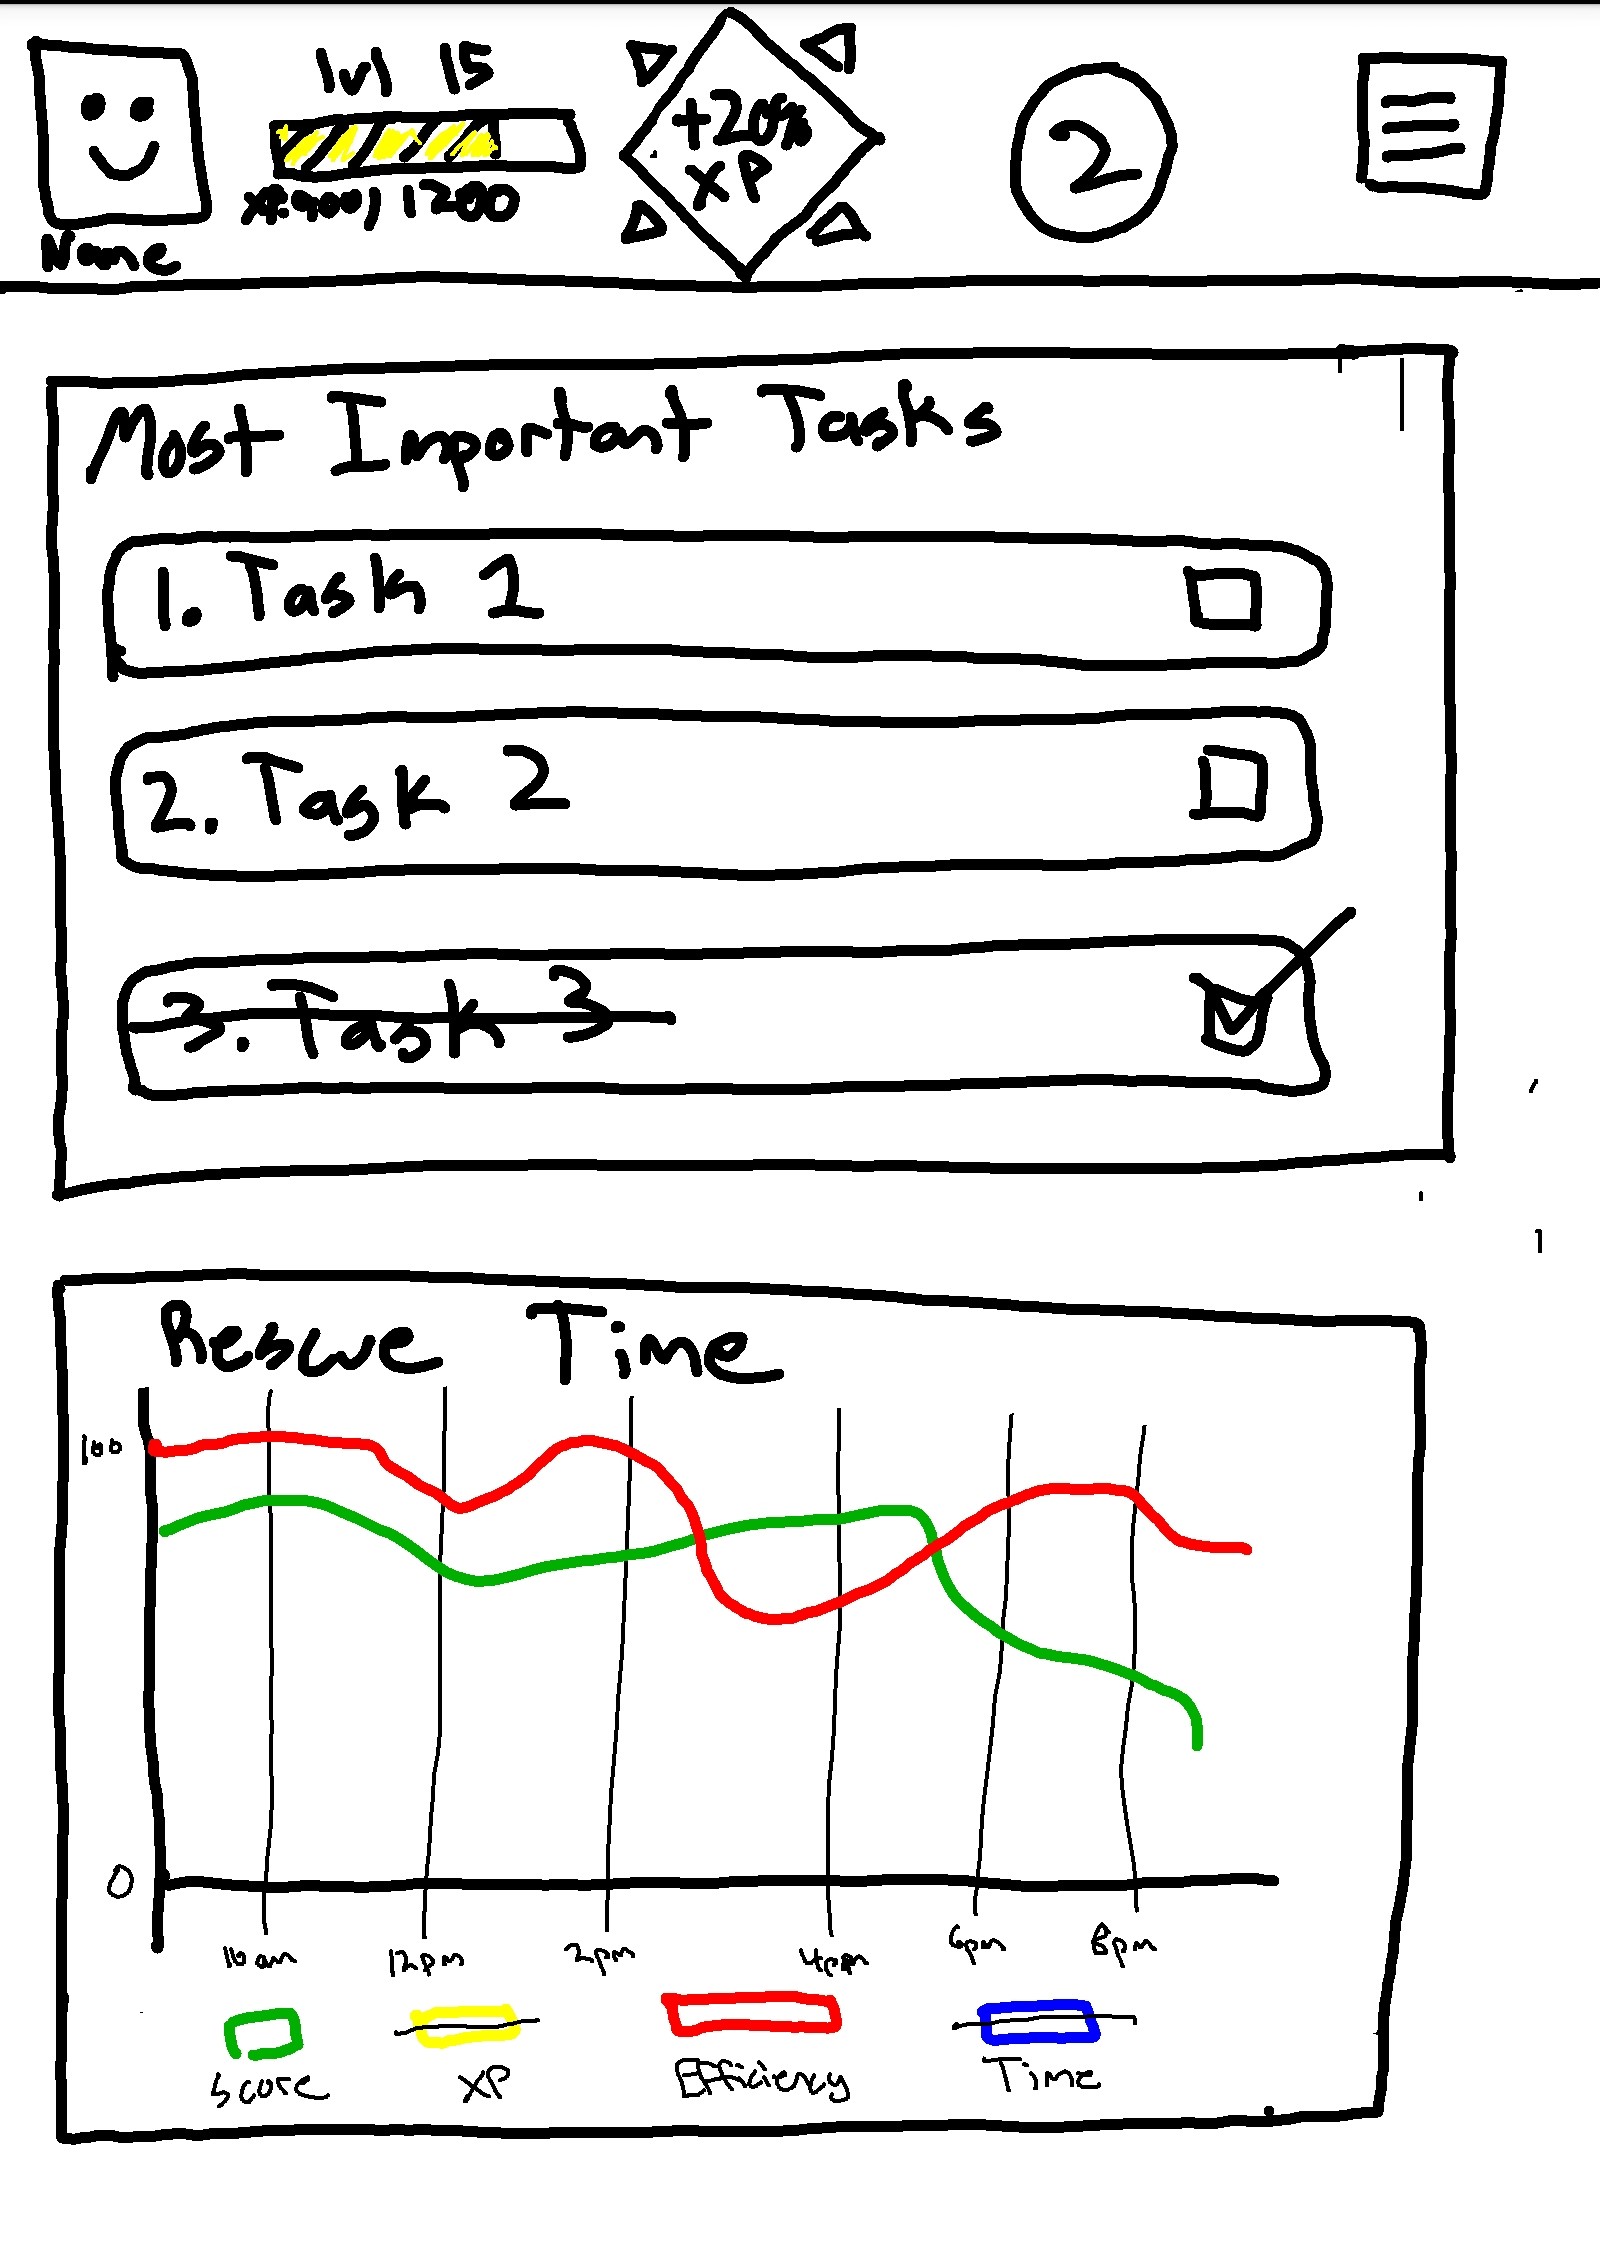 lvl 15
+20%
XP
2
XP: 900/1200
Name
Most Important Tasks
1. Task 1
2. Task 2
3. Task 3
Rescue Time
100
0
10am 12pm 2pm 4pm 6pm 8pm
Score XP Efficiency Time